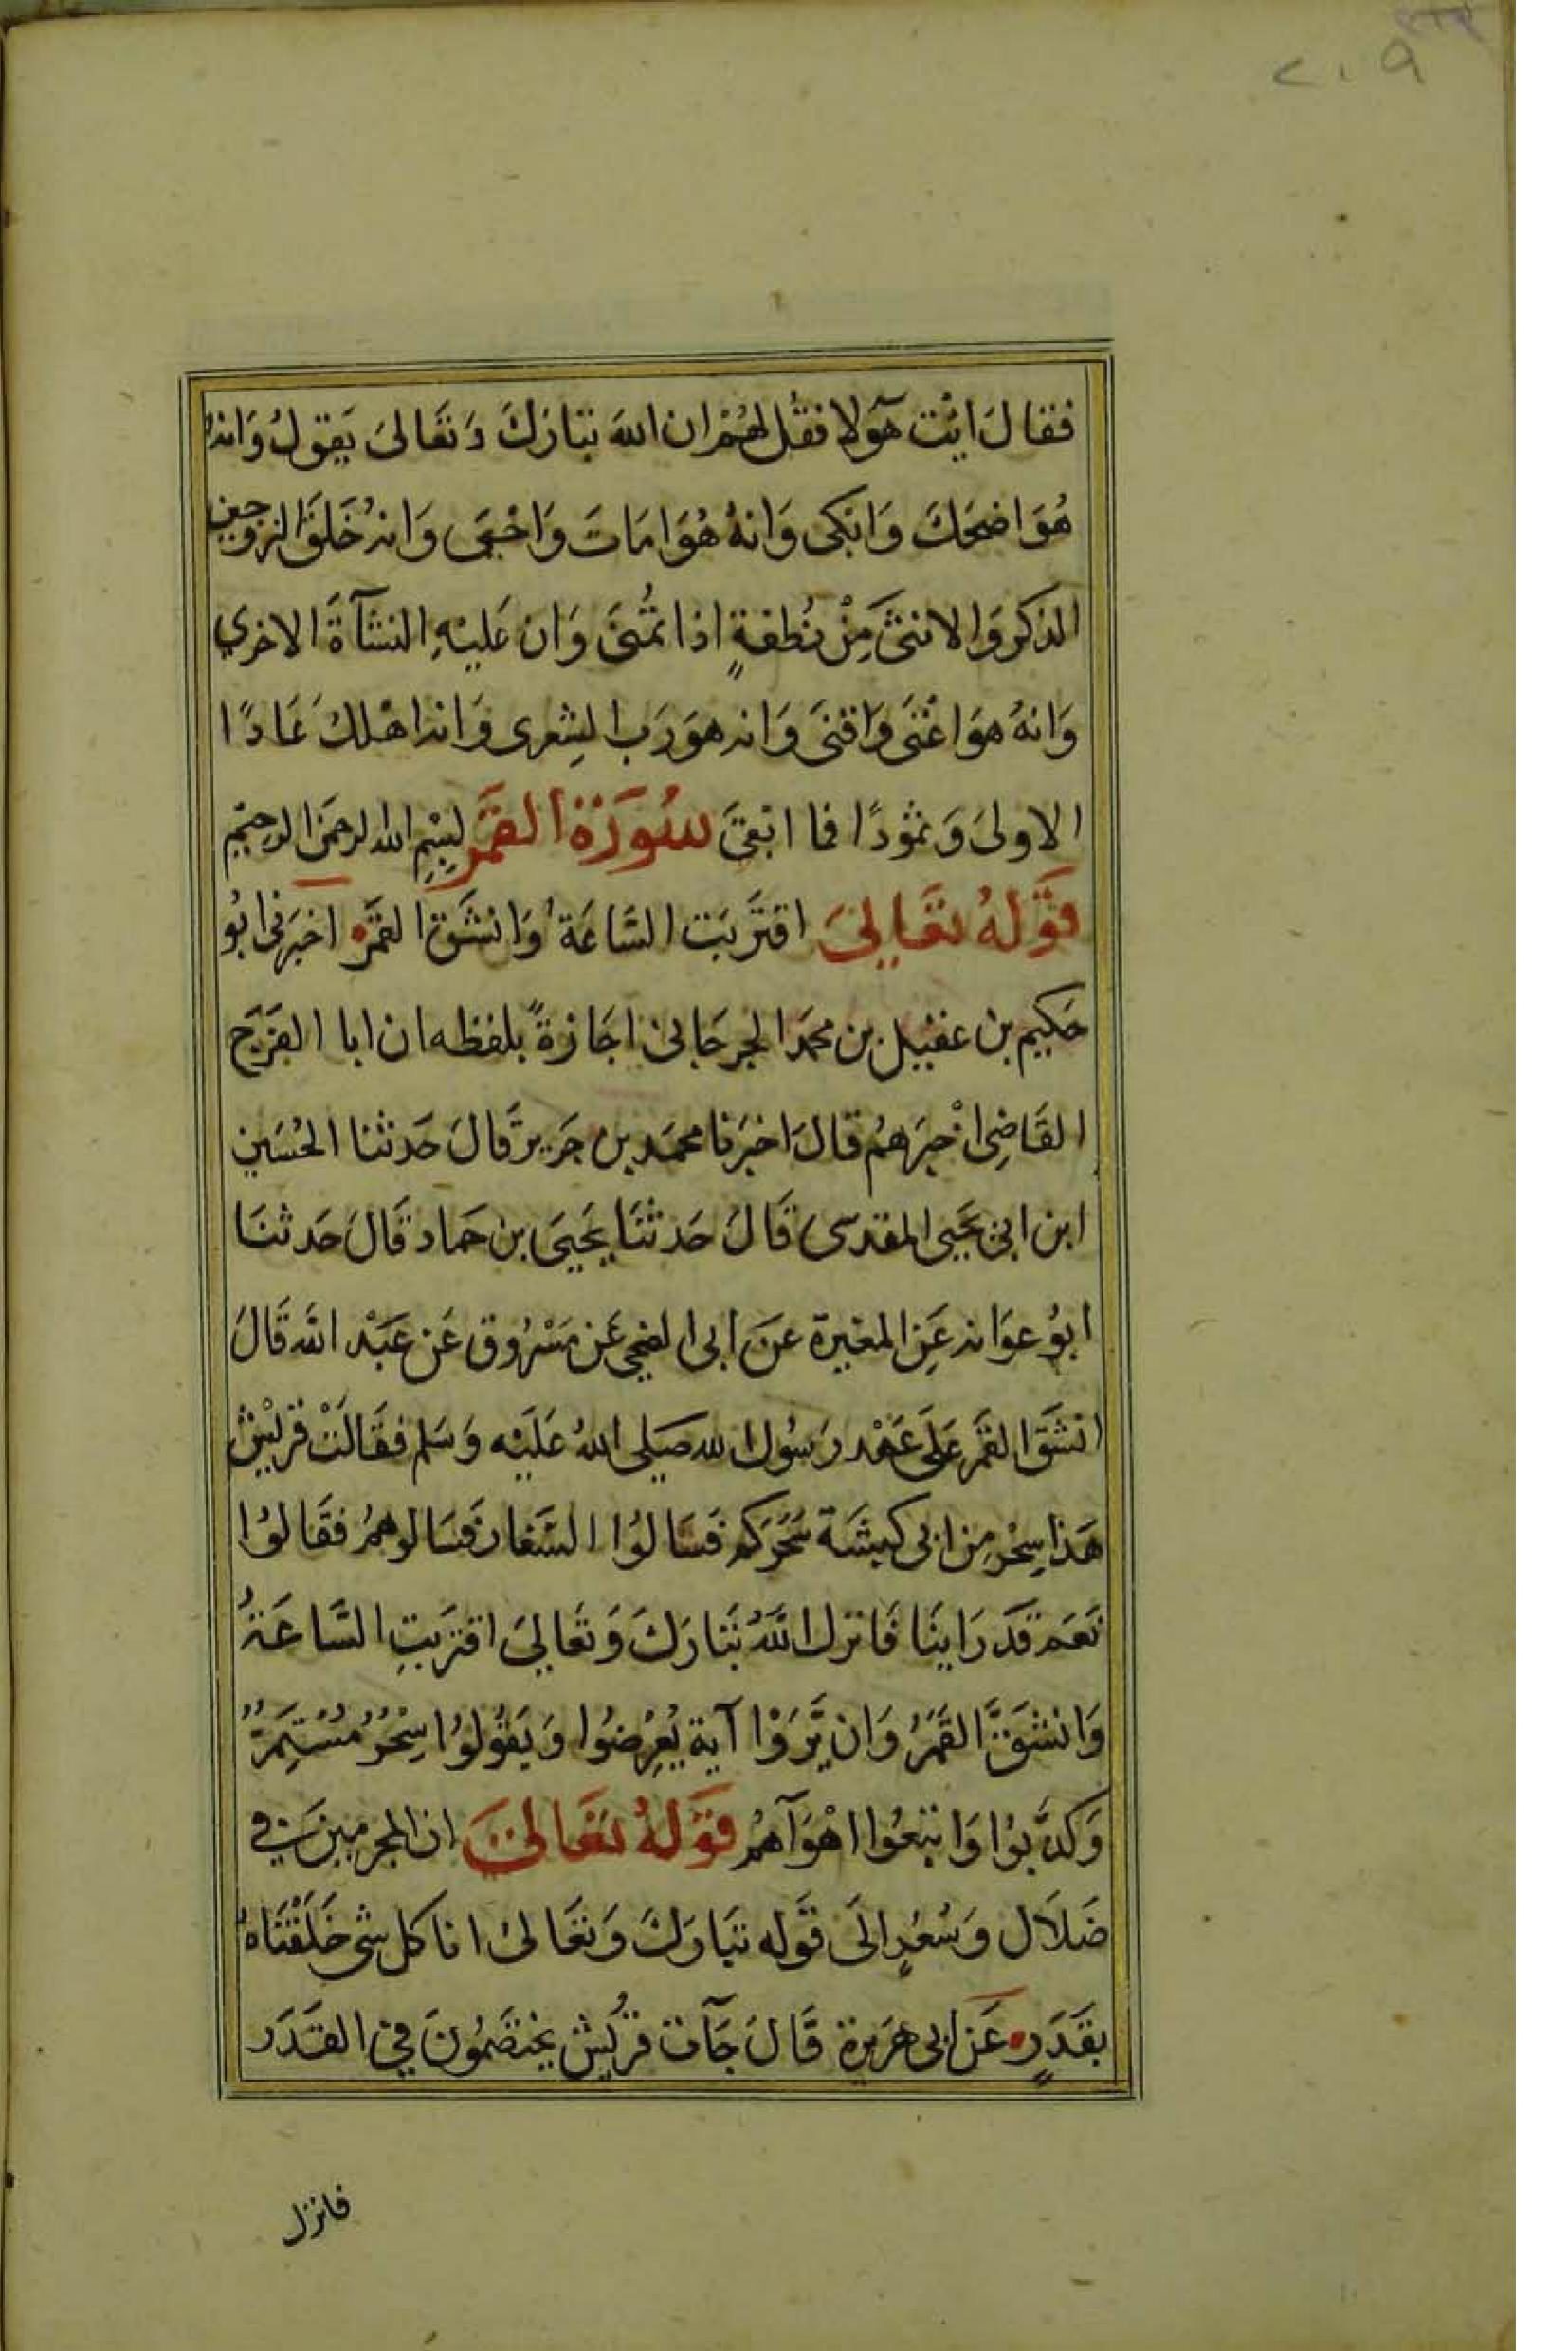 ٢٠٩
فقالَ ائْت هَٓولا فقُل لهُمْ ان اللهَ تبَارَكَ وَتَعَالىَ يَقولُ وَانهُ
هُوَ اضحَكَ وَابْكى وَانهُ هُوَ امَاتَ وَاحْيَى وَانهُ خَلقَ الزوجين
الذكرَ وَالانثىَ مِنْ نُطفةٍ اذا تُمْنىَ وَان عَليْهِ النشآةَ الاخرى
وَانهُ هوَ اغْنىَ وَاقنىَ وَانه هوَ رَب الشِعرى وَانه اهْلكَ عَادًا
الاولىَ وَثمُودًا فما ابْقىَ سُورَةُ القمَر بِسْمِ الله الرحمَن الرحيْمِ
قَوْلهُ تعَالىَ اقترَبَت السَّاعَةُ وَانشَقَ القمَر اخبرَني ابُو
حَكيم بن عقيْل بن محمَد الجرجَاني اجَازةً بلفظه ان ابا الفَرَج
القَاضِى اخْبرَهمُ قالَ اخبرَنا محمَد بن جَرير قَالَ حَدثنا الحُسَين
ابن ابي يحَيى المقدسى قَالَ حَدثنَا يحَيىَ بن حمَاد قَالَ حَدثنَا
ابوُ عوَانه عَنِ المغيرة عنَ ابى الضحى عَن مَسْرُوق عَن عَبْد الله قَالَ
انشَقَ القمَر عَلىَ عَهْد رَسُول الله صَلى اللهُ عَليْه وَسَلم فقَالتْ قرَيْش
هَذا سِحْر مِن ابى كبشَة سَحَركم فَسَالوُا السَّفار فسَالوهمُ فقَالوُا
نَعَم قَد رَاينَا فَانزل اللهُ تبَارَكَ وَتعَالىَ اقتربَتِ السَّاعَةُ
وَانشَقَّ القَمَرُ وَان يَّرَوْا آية يُعْرِضُوا وَيَقوُلوُا سِحْرُ مُسْتَمِرٌ
وَكذَّبوُا وَاتبَعُوا اهْوَآهمُ قَوْلهُ تعَالىَ ان المجرمين في
ضَلاَل وَسُعُرٍ الىَ قَوله تبَارَكَ وَتعَالىَ انا كل شى خَلَقْنَاهُ
بقَدَرٍ عَن ابى هرَيرة قَالَ جَآت قرَيش يختصَمُونَ في القدَر
فانزل